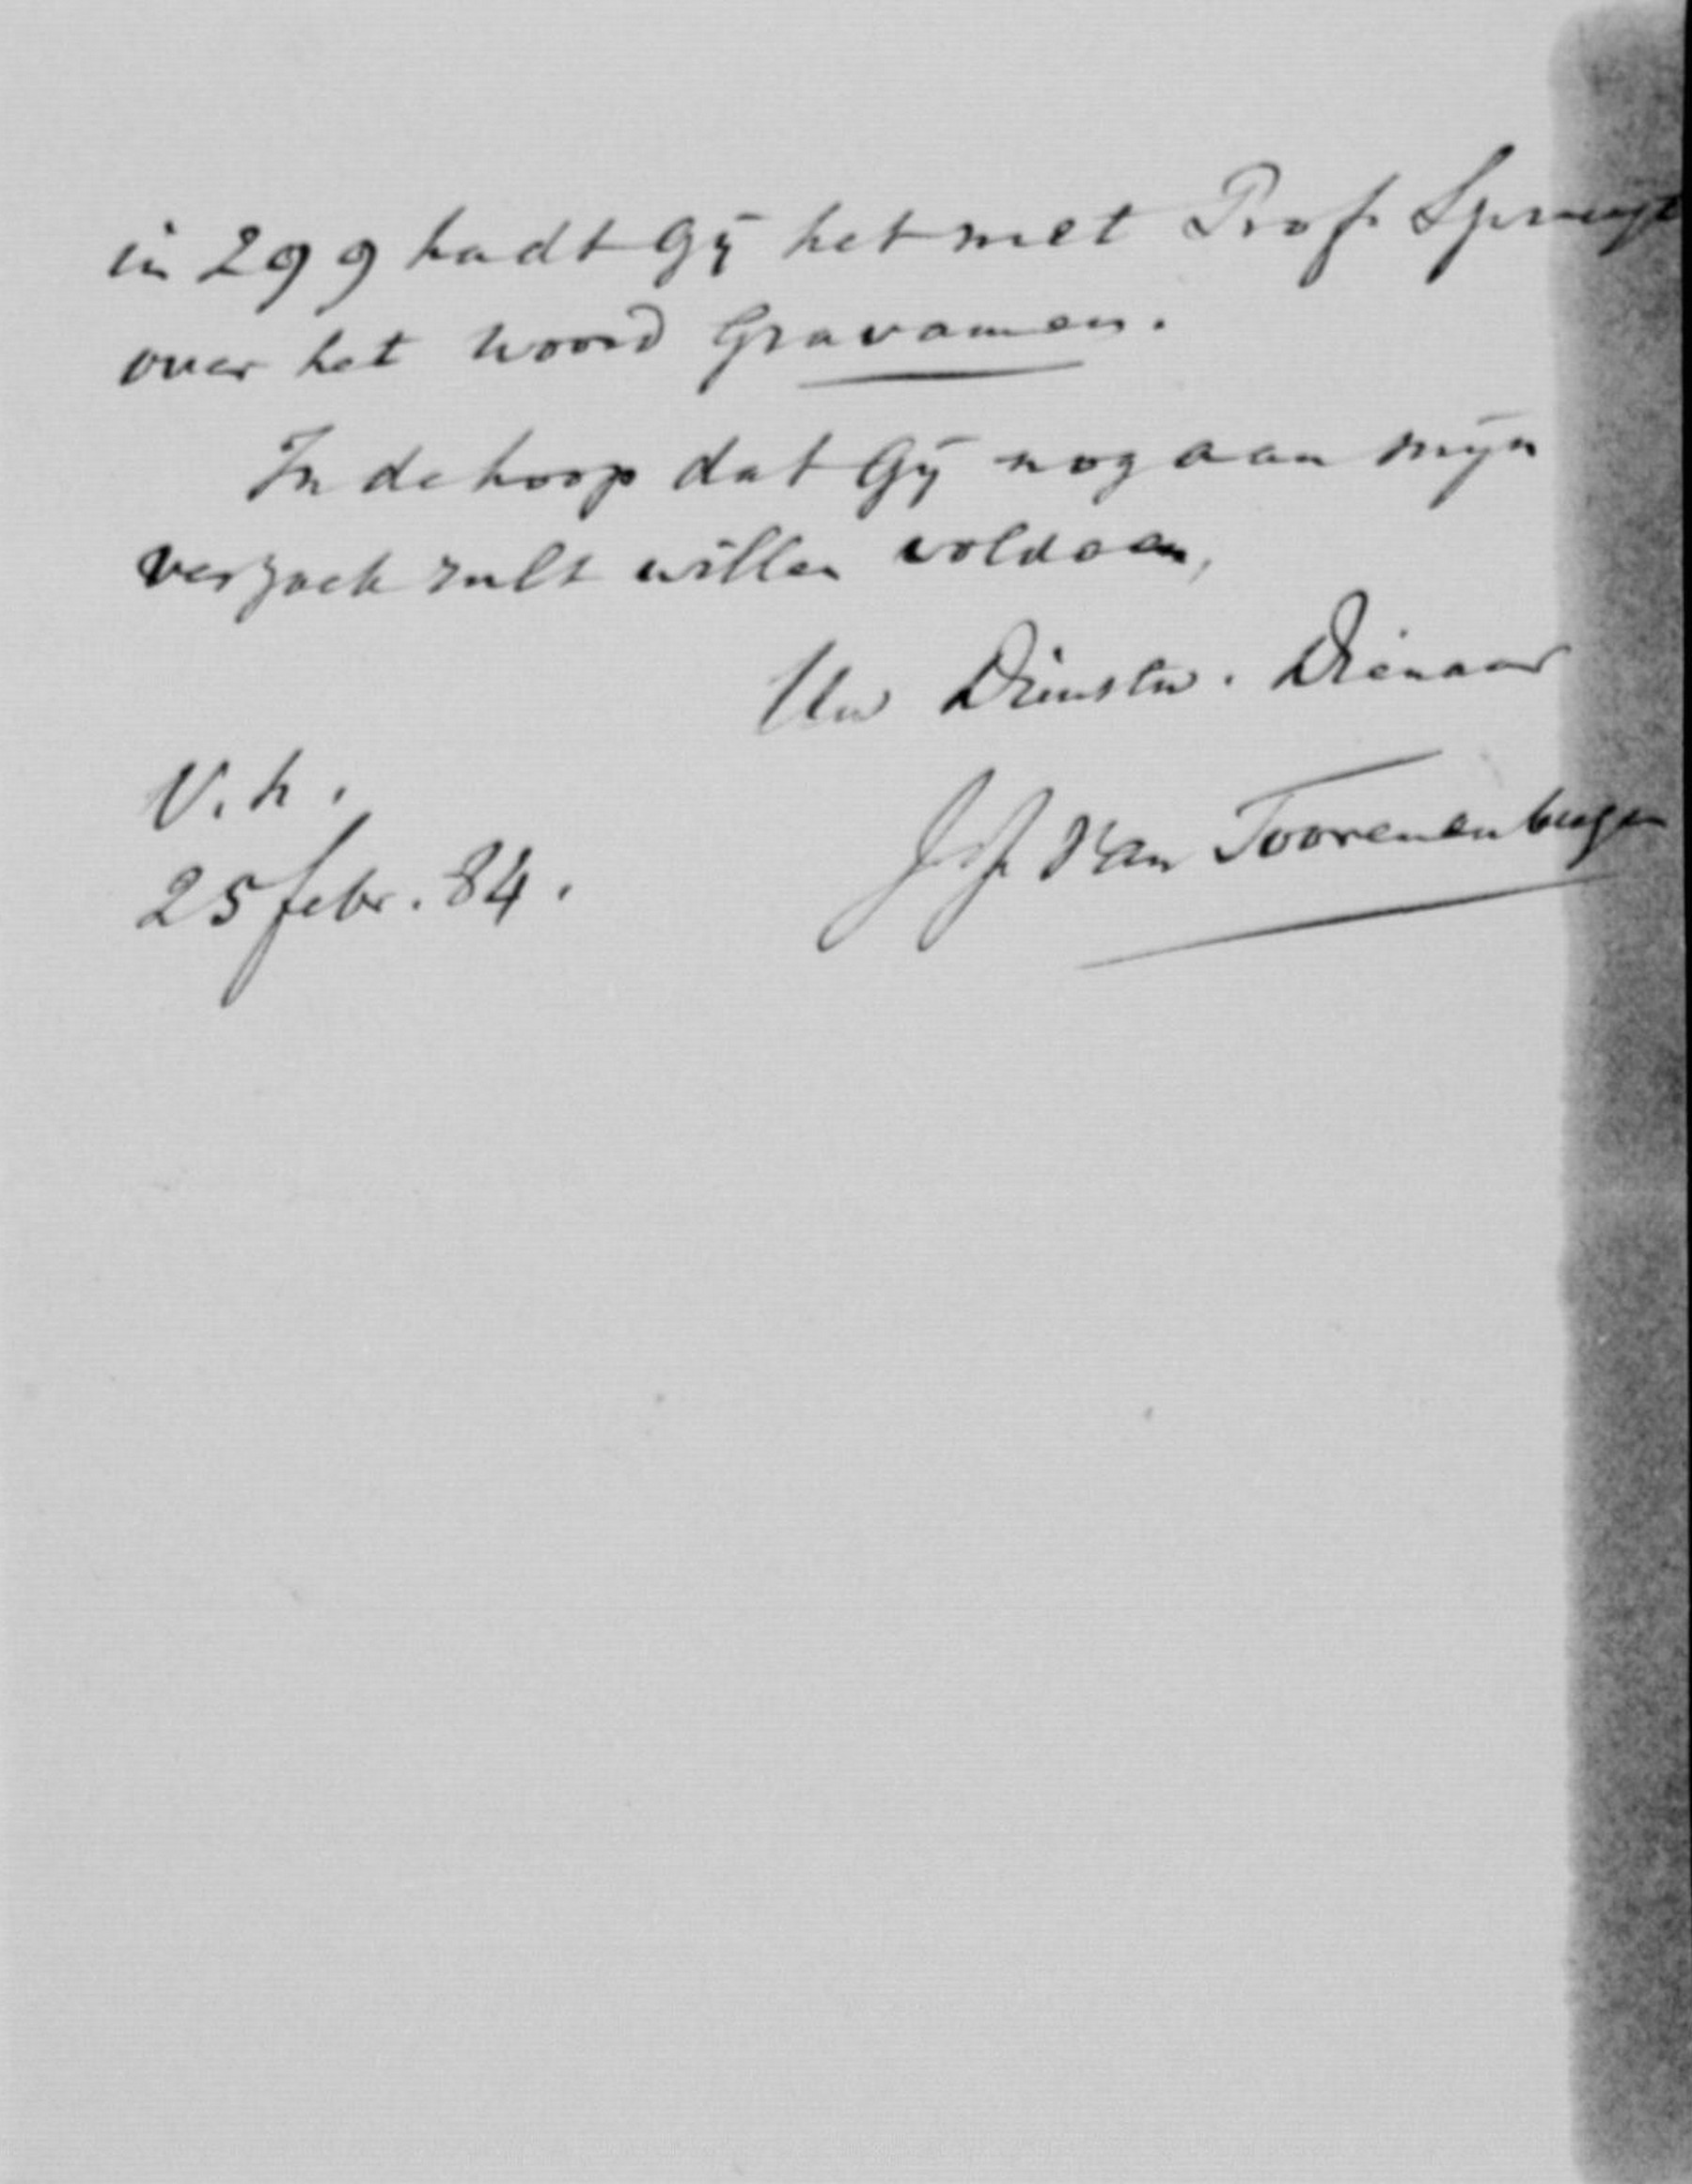 in 299 hadt Gij het met Prof. Spruyt
over het woord Gravamen.
In de hoop dat Gij nog aan mijn
verzoek zult willen voldoen,
Uw Dienstw. Dienaar
V. h.
25 febr. 84.
Joh. Van Toorenenbergen